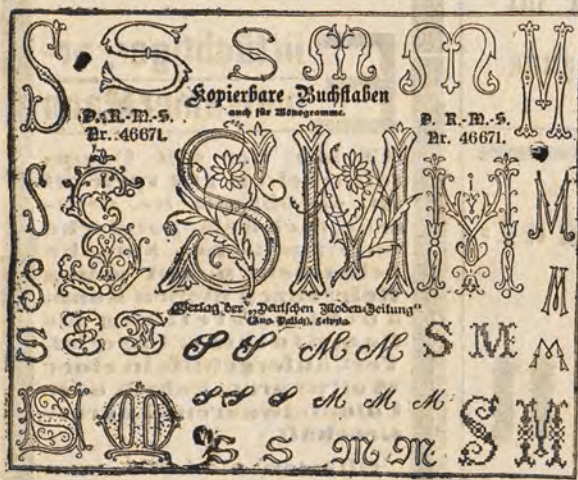 S S S M M M
Kopierbare Buchstaben
auch für Monogramme.
D. R.-M.-S.
Nr. 46671.
D. R.-M.-S.
Nr. 46671.
S S S M M M
Verlag der „Deutschen Moden-Zeitung“
(Aug. Polich), Leipzig.
S S M M M
S S M S S M M S M M
S S S M M M
S M S S M M S M